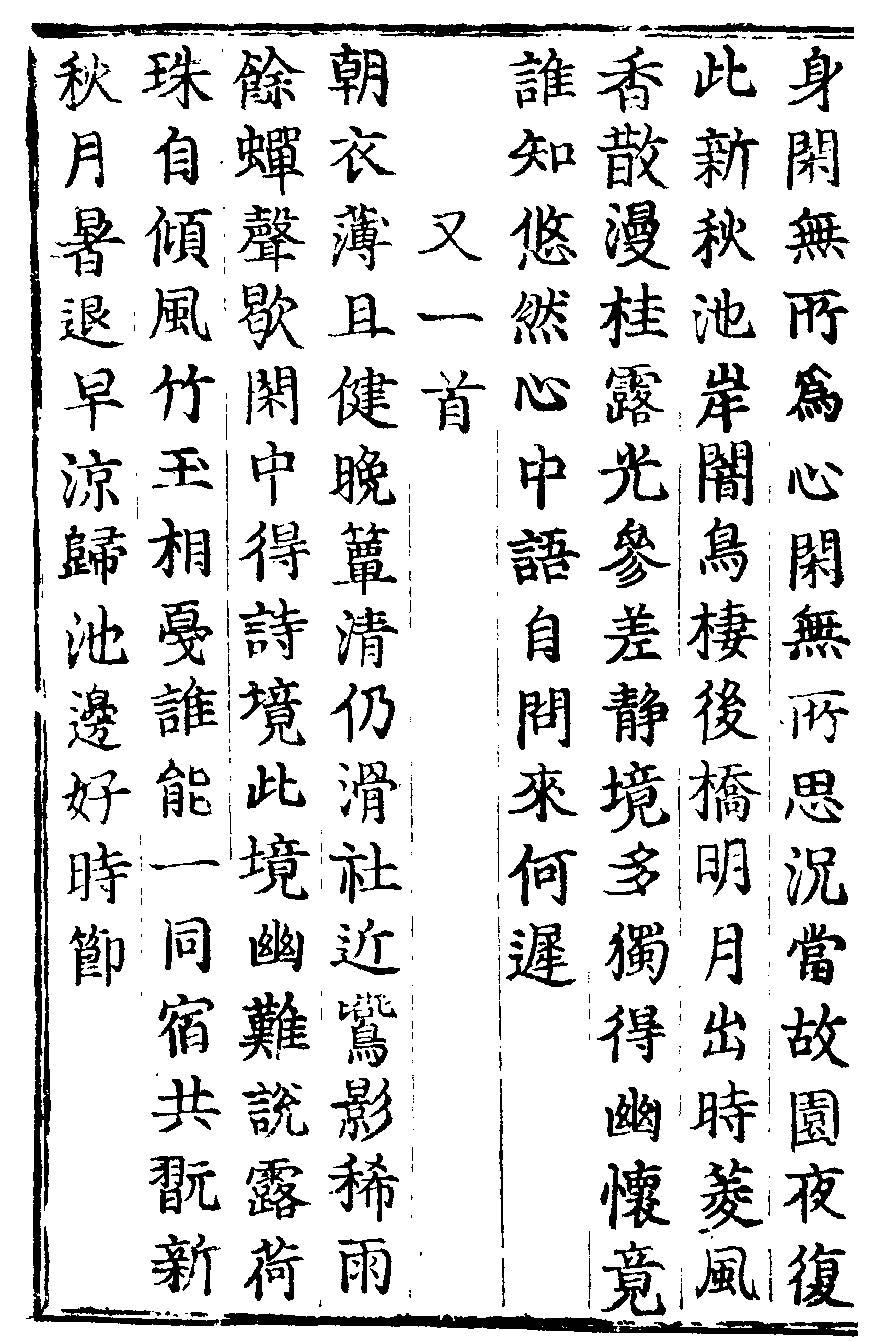 身閑無所爲心閑無所思况當故園夜復
此新秋池岸闇鳥棲後橋明月出時菱風
香散漫桂露光參差静境多獨得幽懷竟
誰知悠然心中語自問來何遲
又一首
朝衣薄且健晚簟清仍滑社近鷰影稀雨
餘蟬聲歇閑中得詩境此境幽難說露荷
珠自傾風竹玉相戞誰能一同宿共翫新
秋月暑退早涼歸池邊好時節